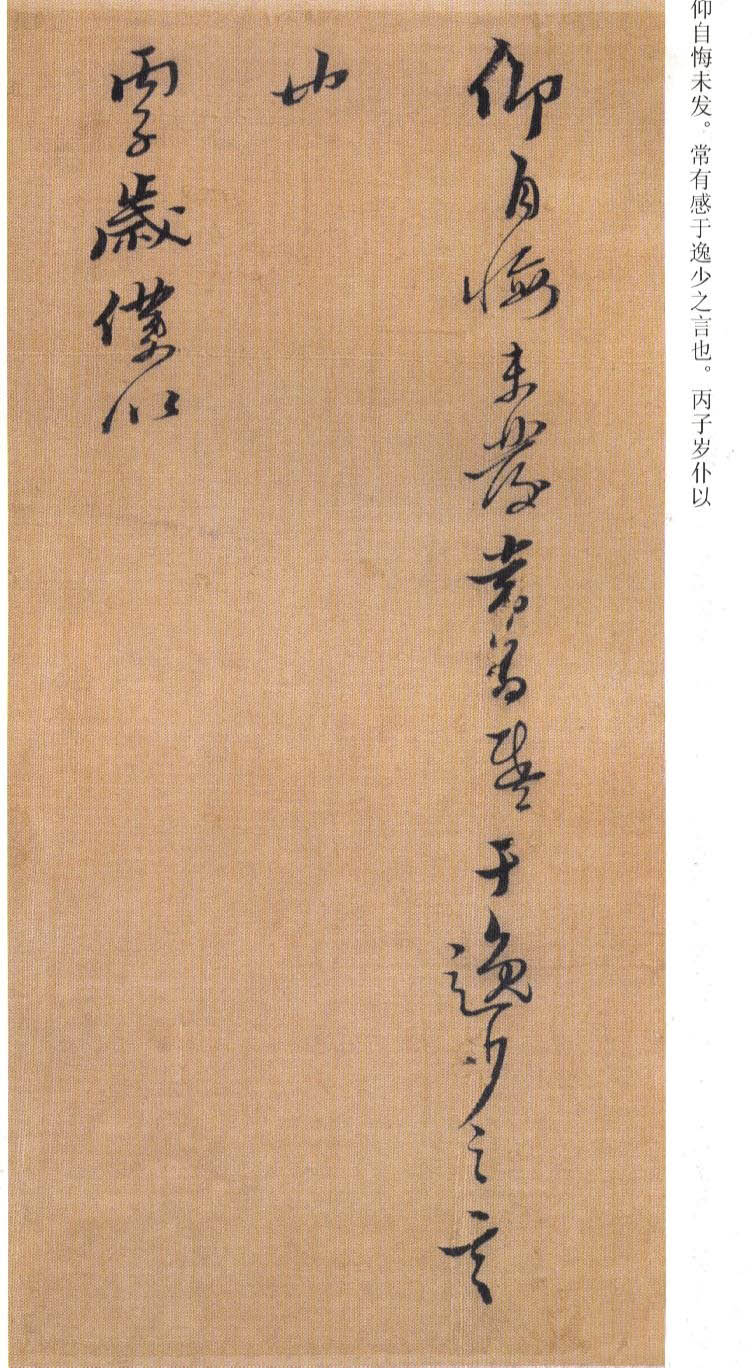 仰自悔未发。常有感于逸少之言也。丙子岁仆以
仰自悔未發常有感于逸少之言
也
丙子歲僕以